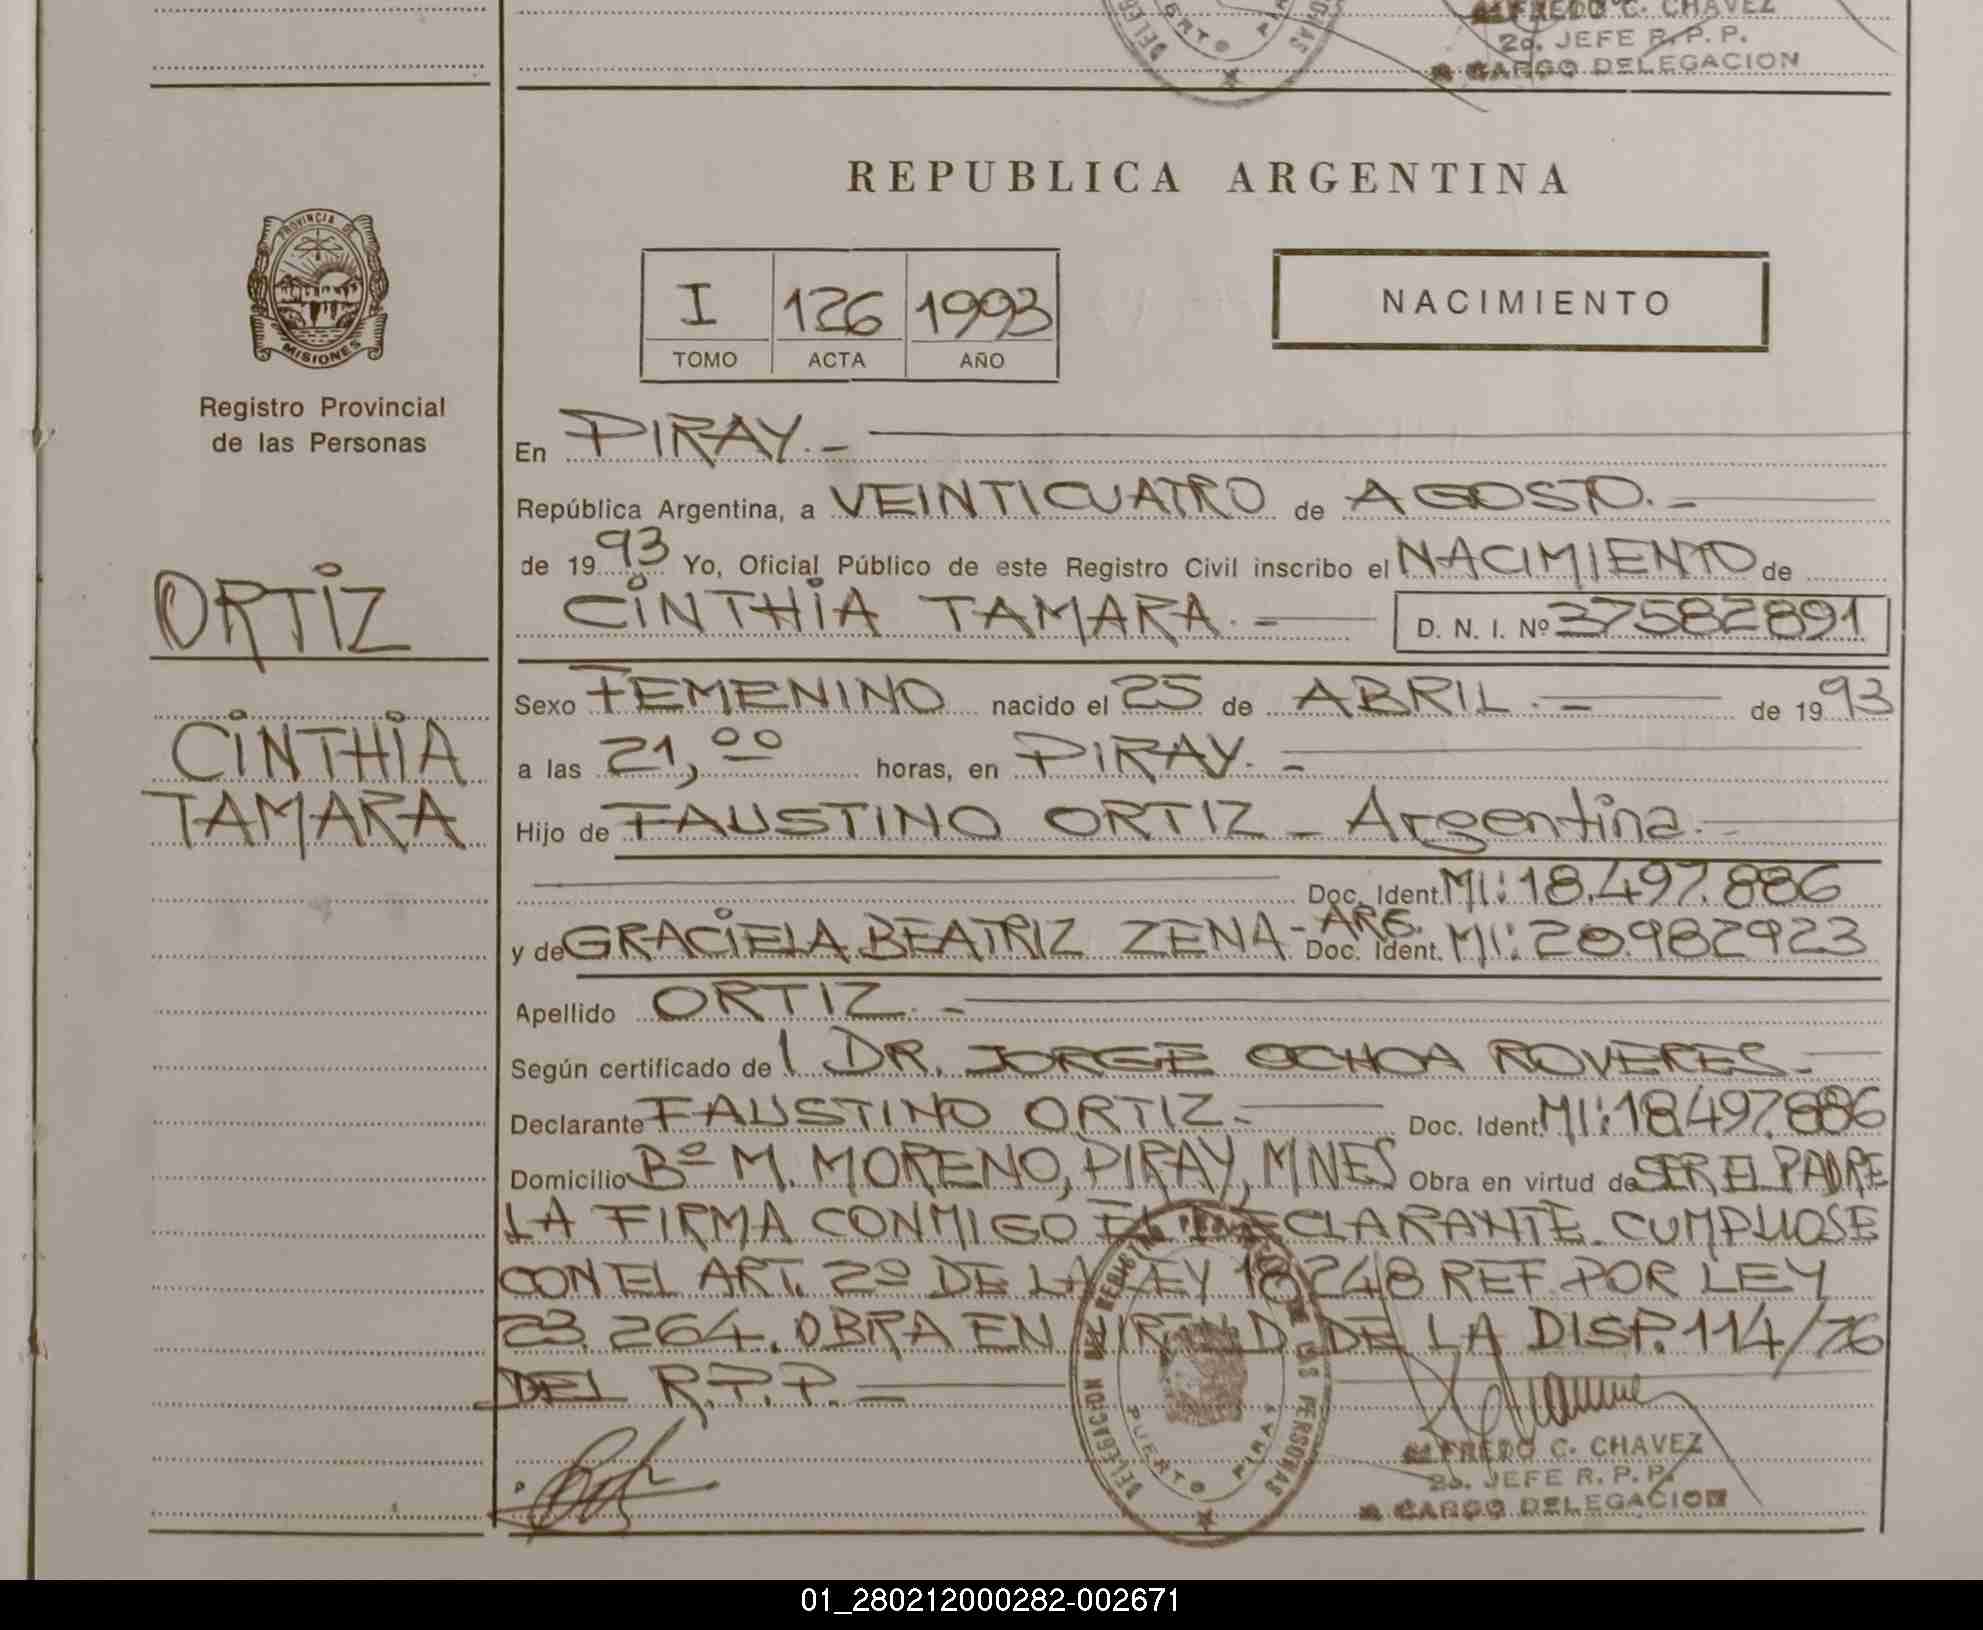 ALFREDO C. CHAVEZ
2o. JEFE R. P. P.
A CARGO DELEGACION
REPUBLICA ARGENTINA
PROVINCIA DE
MISIONES
Registro Provincial
de las Personas
I 126 1993
TOMO ACTA AÑO
NACIMIENTO
En PIRAY.-
República Argentina, a VEINTICUATRO de AGOSTO.-
de 1993 Yo, Oficial Público de este Registro Civil inscribo el NACIMIENTO de
CINTHIA TAMARA.- D. N. I. Nº 37582891
ORTIZ
CINTHIA
TAMARA
Sexo FEMENINO nacido el 25 de ABRIL.- de 1993
a las 21,00 horas, en PIRAY.-
Hijo de FAUSTINO ORTIZ - Argentina.-
Doc. Ident. MI: 18.497.886
y de GRACIELA BEATRIZ ZENA - ARG. Doc. Ident. MI: 20.982923
Apellido ORTIZ.-
Según certificado de l DR. JORGE OCHOA ROVERES.-
Declarante FAUSTINO ORTIZ.- Doc. Ident. MI: 18.497.886
Domicilio Bº M. MORENO, PIRAY, MNES Obra en virtud de SER EL PADRE
LA FIRMA CONMIGO EL DECLARANTE. CUMPLIOSE
CON EL ART. 2º DE LA LEY 18248 REF. POR LEY
23.264. OBRA EN VIRTUD DE LA DISP. 114/76
DEL R.P.P.-
DELEGACION DEL REGISTRO PROVINCIAL DE LAS PERSONAS
PUERTO PIRAY
ALFREDO C. CHAVEZ
2o. JEFE R. P. P.
A CARGO DELEGACION
01_280212000282-002671